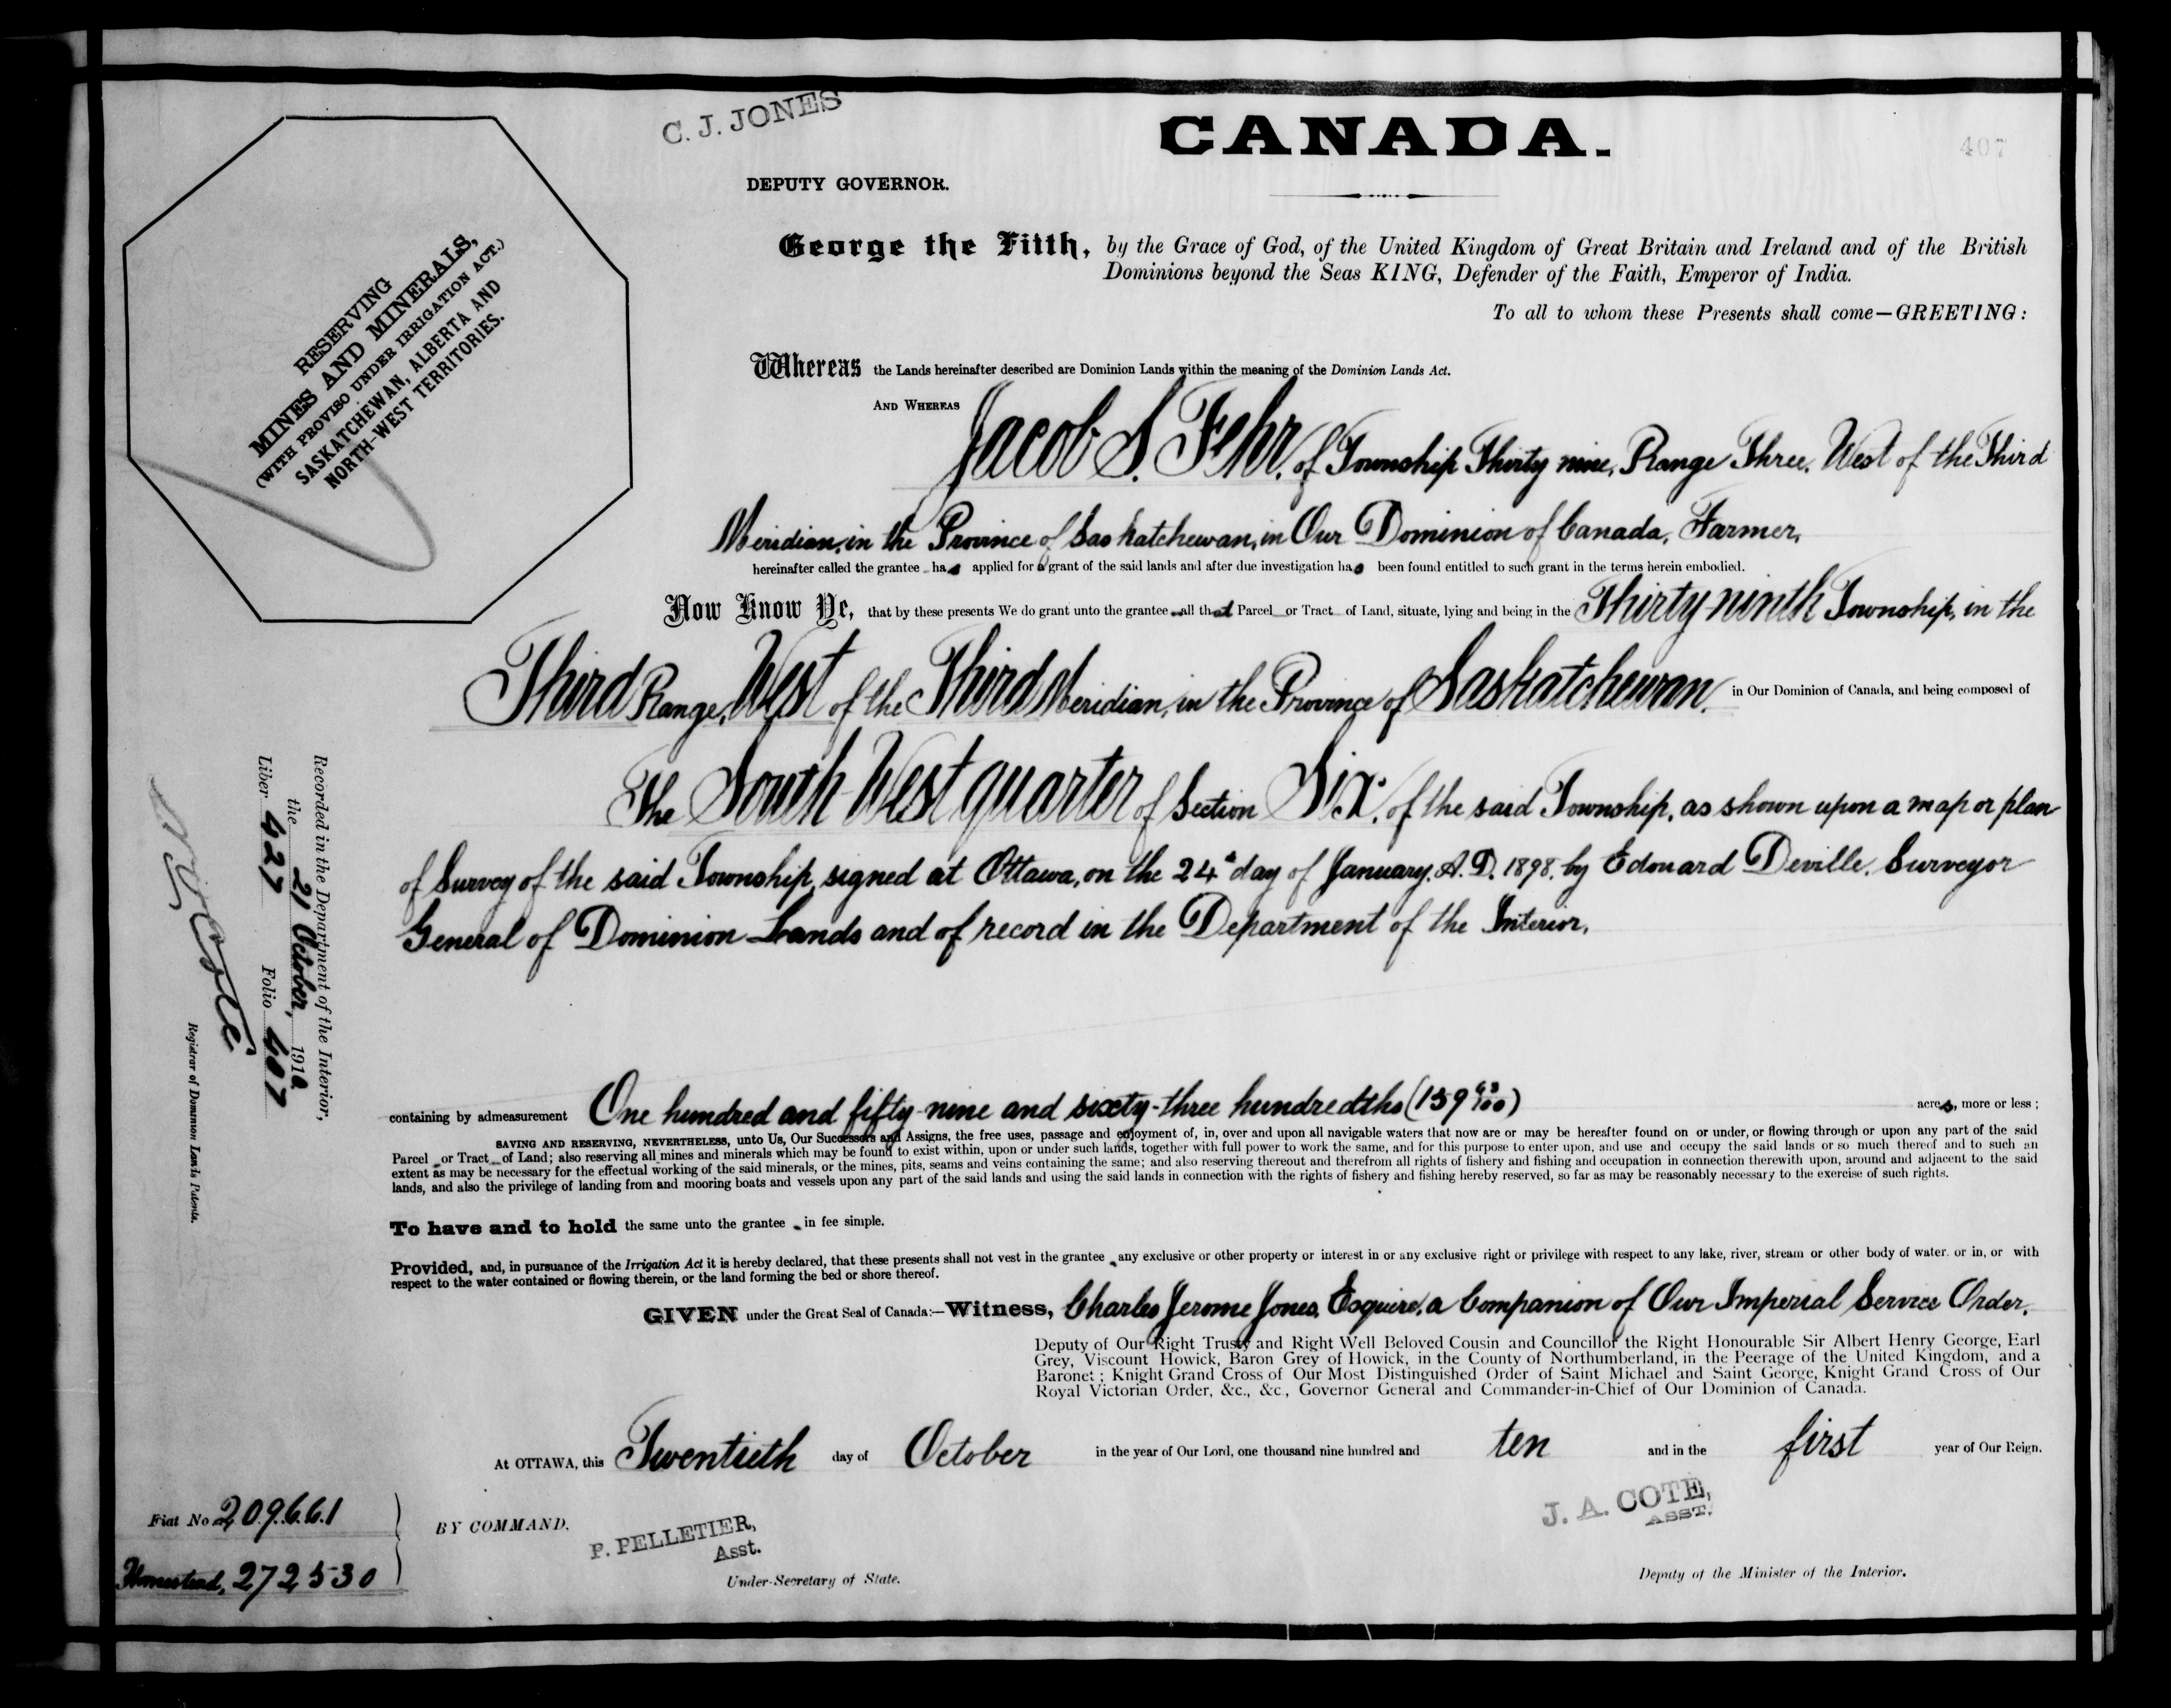 C. J. JONES
CANADA.
407
DEPUTY GOVERNOR.
RESERVING
MINES AND MINERALS,
(WITH PROVISO UNDER IRRIGATION ACT.)
SASKATCHEWAN, ALBERTA AND
NORTH-WEST TERRITORIES.
George the Fifth, by the Grace of God, of the United Kingdom of Great Britain and Ireland and of the British
Dominions beyond the Seas KING, Defender of the Faith, Emperor of India.
To all to whom these Presents shall come—GREETING:
Whereas the Lands hereinafter described are Dominion Lands within the meaning of the Dominion Lands Act.
AND WHEREAS Jacob S. Fehr, of Township Thirty nine, Range Three, West of the Third
Meridian, in the Province of Saskatchewan, in Our Dominion of Canada, Farmer,
hereinafter called the grantee has applied for a grant of the said lands and after due investigation has been found entitled to such grant in the terms herein embodied.
Now Know Ye, that by these presents We do grant unto the grantee all that Parcel or Tract of Land, situate, lying and being in the Thirty ninth Township, in the
Third Range, West of the Third Meridian, in the Province of Saskatchewan, in Our Dominion of Canada, and being composed of
The South West quarter of Section Six, of the said Township, as shown upon a map or plan
of Survey of the said Township, signed at Ottawa, on the 24th day of January, A.D. 1898, by Edouard Deville, Surveyor
General of Dominion Lands and of record in the Department of the Interior.
Recorded in the Department of the Interior,
the 21 October, 1910
Liber 427 Folio 407
N O Coté
Registrar of Dominion Lands Patents.
containing by admeasurement One hundred and fifty-nine and sixty-three hundredths (159 63/100) acres, more or less;
SAVING AND RESERVING, NEVERTHELESS, unto Us, Our Successors and Assigns, the free uses, passage and enjoyment of, in, over and upon all navigable waters that now are or may be hereafter found on or under, or flowing through or upon any part of the said
Parcel or Tract of Land; also reserving all mines and minerals which may be found to exist within, upon or under such lands, together with full power to work the same, and for this purpose to enter upon, and use and occupy the said lands or so much thereof and to such an
extent as may be necessary for the effectual working of the said minerals, or the mines, pits, seams and veins containing the same; and also reserving thereout and therefrom all rights of fishery and fishing and occupation in connection therewith upon, around and adjacent to the said
lands, and also the privilege of landing from and mooring boats and vessels upon any part of the said lands and using the said lands in connection with the rights of fishery and fishing hereby reserved, so far as may be reasonably necessary to the exercise of such rights.
To have and to hold the same unto the grantee in fee simple.
Provided, and, in pursuance of the Irrigation Act it is hereby declared, that these presents shall not vest in the grantee any exclusive or other property or interest in or any exclusive right or privilege with respect to any lake, river, stream or other body of water, or in, or with
respect to the water contained or flowing therein, or the land forming the bed or shore thereof.
GIVEN under the Great Seal of Canada:—Witness, Charles Jerome Jones, Esquire, a Companion of Our Imperial Service Order,
Deputy of Our Right Trusty and Right Well Beloved Cousin and Councillor the Right Honourable Sir Albert Henry George, Earl
Grey, Viscount Howick, Baron Grey of Howick, in the County of Northumberland, in the Peerage of the United Kingdom, and a
Baronet; Knight Grand Cross of Our Most Distinguished Order of Saint Michael and Saint George, Knight Grand Cross of Our
Royal Victorian Order, &c., &c., Governor General and Commander-in-Chief of Our Dominion of Canada.
At OTTAWA, this Twentieth day of October in the year of Our Lord, one thousand nine hundred and ten and in the first year of Our Reign.
Fiat No 209661
Homestead, 272530
BY COMMAND,
P. PELLETIER,
Asst.
Under-Secretary of State.
J. A. COTE,
ASST.
Deputy of the Minister of the Interior.